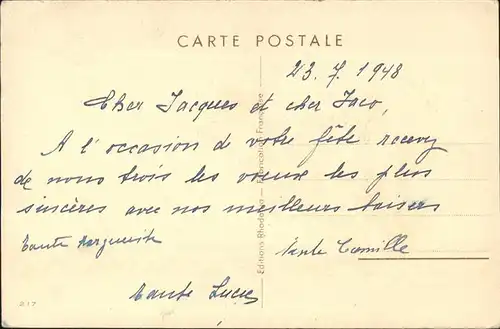 CARTE POSTALE
23. 7. 1948
Cher Jacques et cher Jaco,
A l'occasion de votre fête recevez
de nous trois les voeux les plus
sincères avec nos meilleurs baisers
Tante Marguerite
Tante Camille
Tante Lucie
Editions Rhodania — Fabrication Française
217